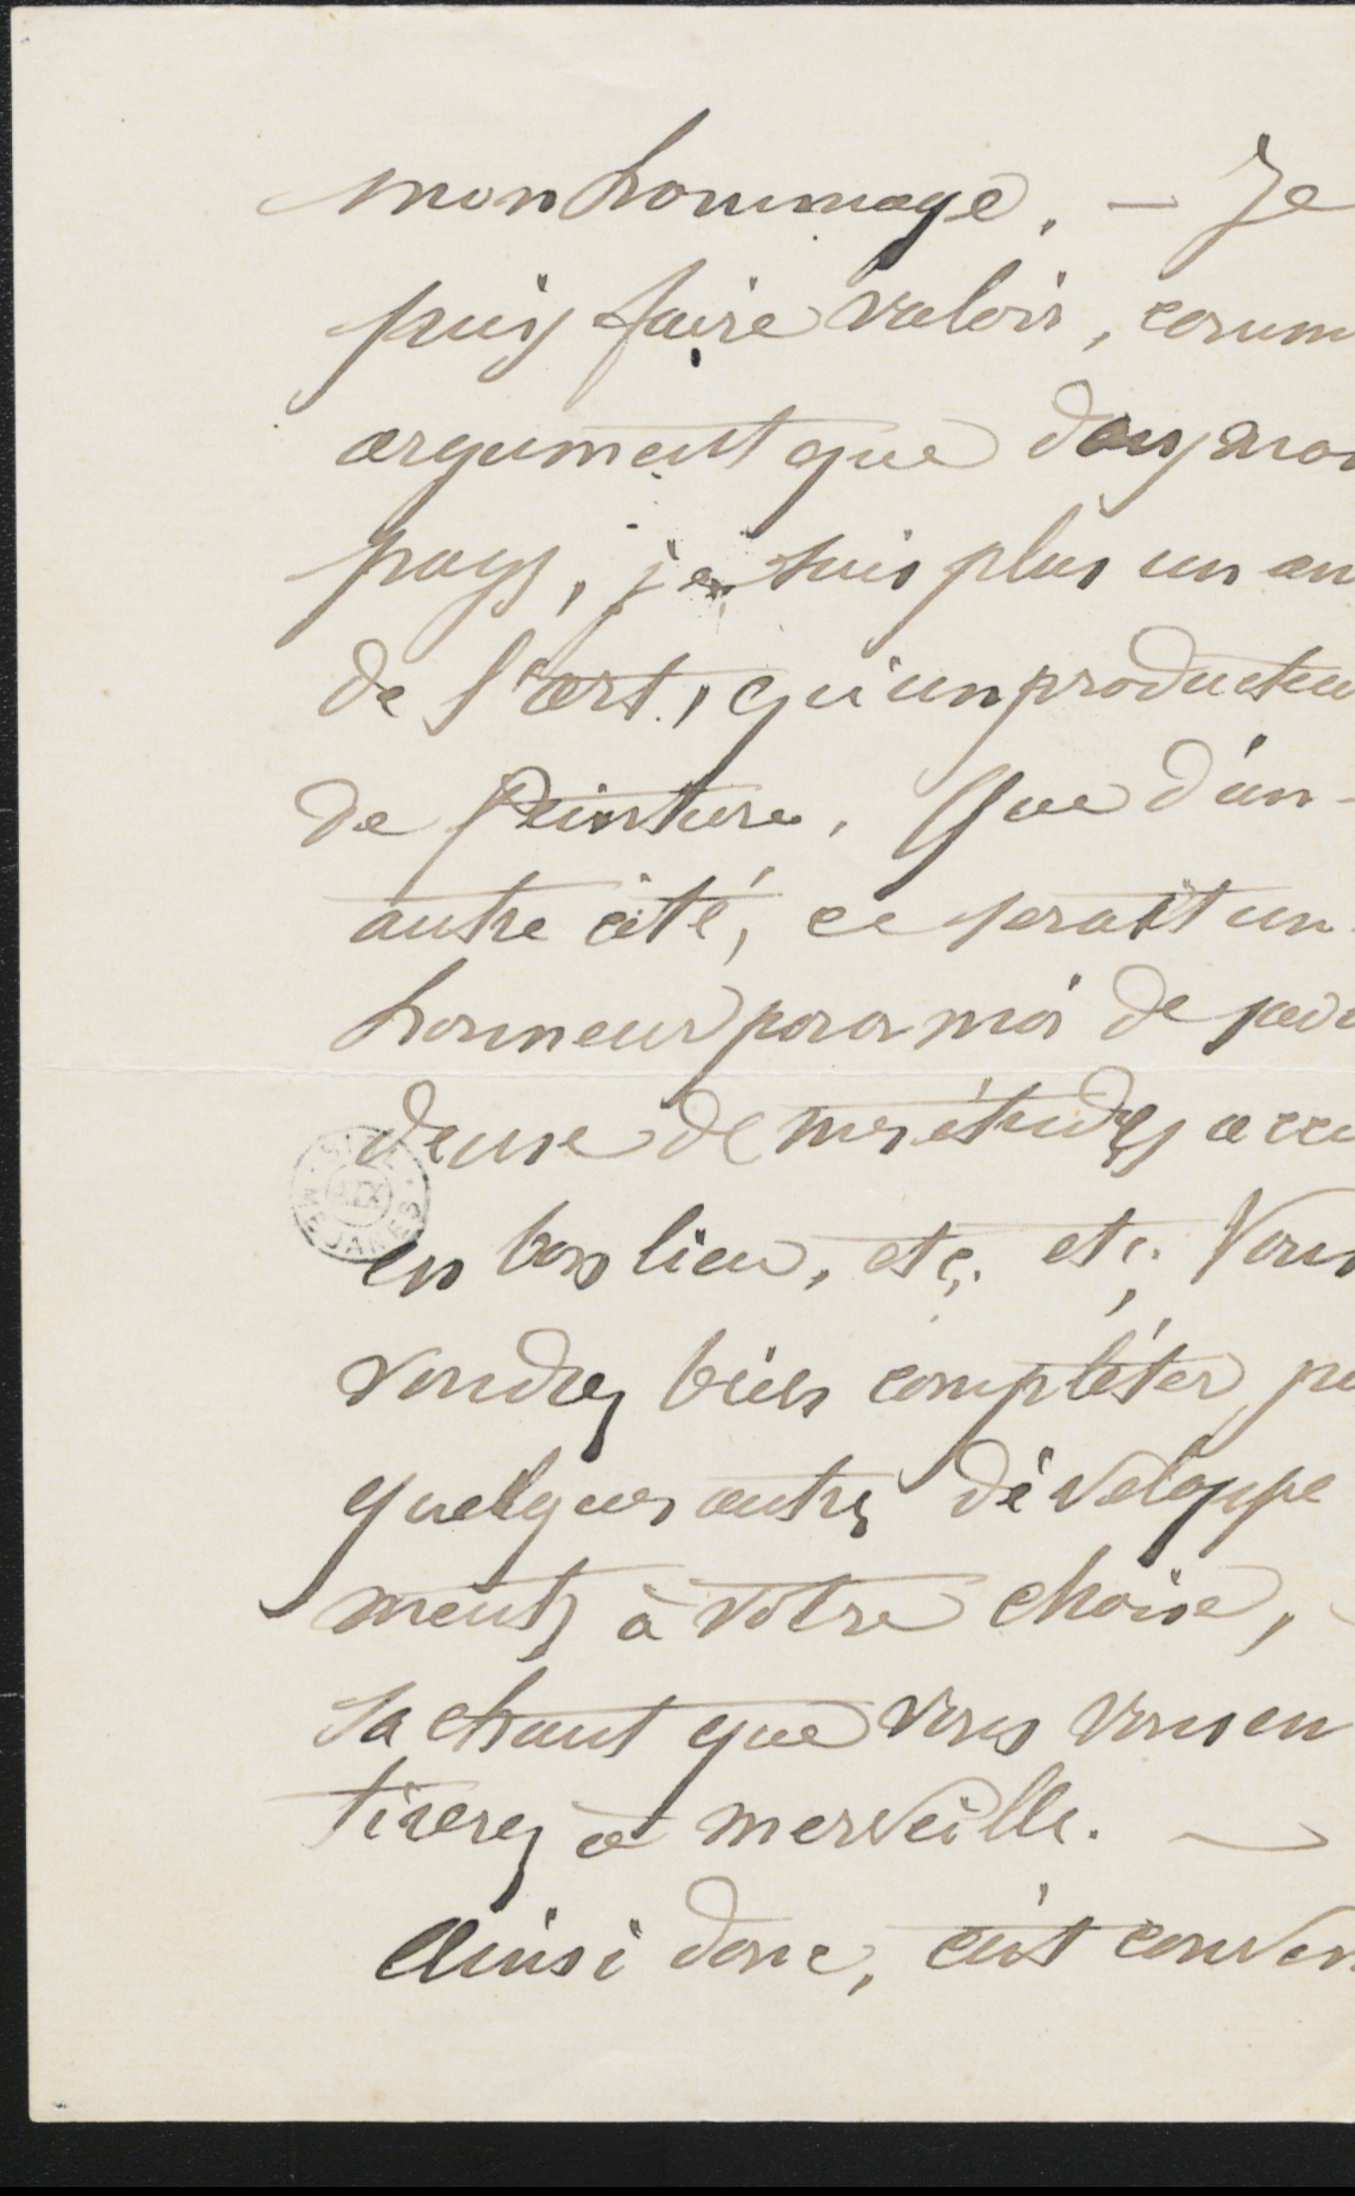 mon hommage. — Je
puis faire valoir, comm
argument que dans mon
pays, je suis plus un am
de l'art, qu'un producteu
de peinture. Que d'un
autre côté, ce serait un
honneur pour moi de
deux de mes études
en bon lieu, etc. etc. Vous
voudrez bien compléter
quelques autres développe
ments à votre choix,
sachant que vous vous en
tirerez à merveille. —
Ainsi donc, c'est conven
AIX
MEJANES